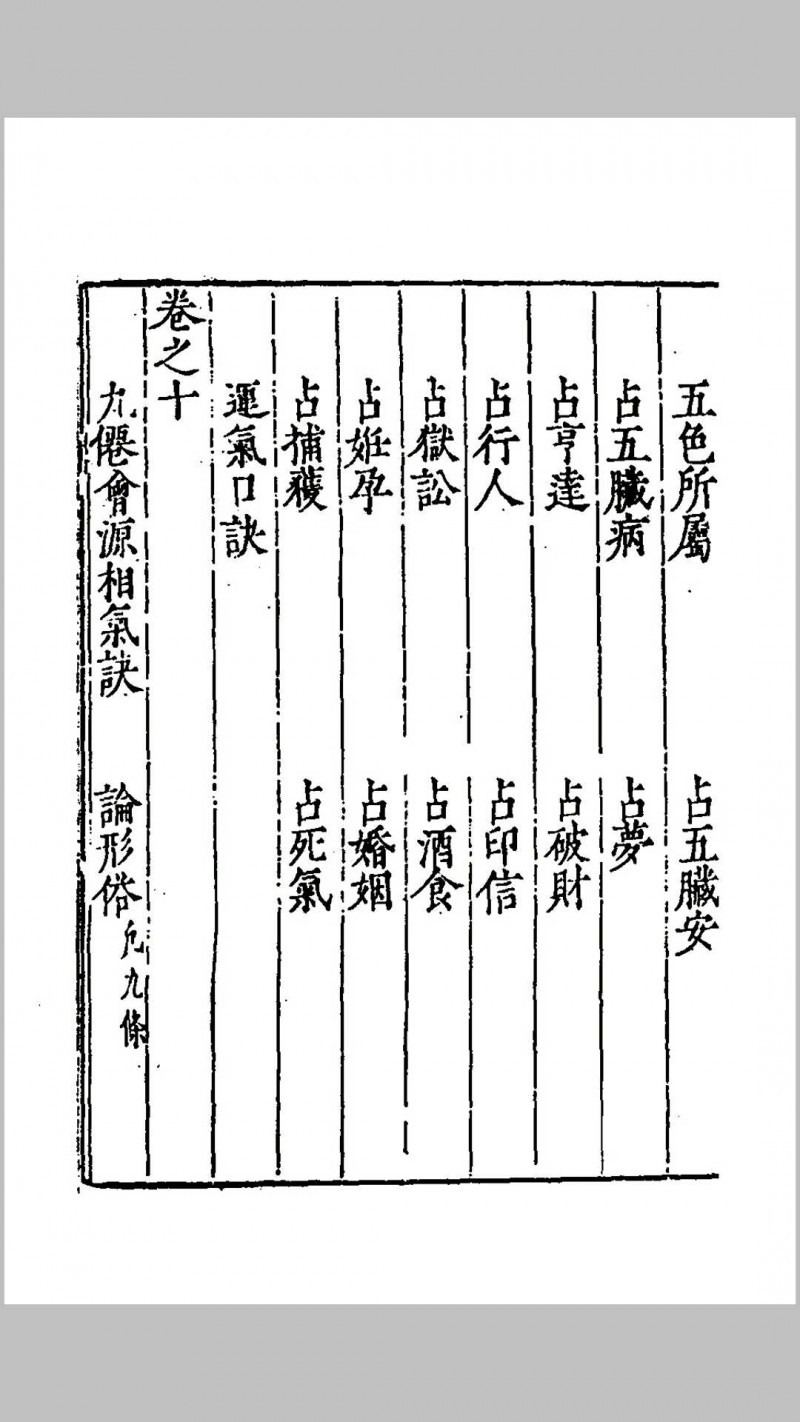 五色所屬　占五臟安
占五臟病　占夢
占亨達　占破財
占行人　占印信
占獄訟　占酒食
占妊孕　占婚姻
占捕獲　占死氣
運氣口訣
卷之十
九僊會源相氣訣　論形俗凡九條